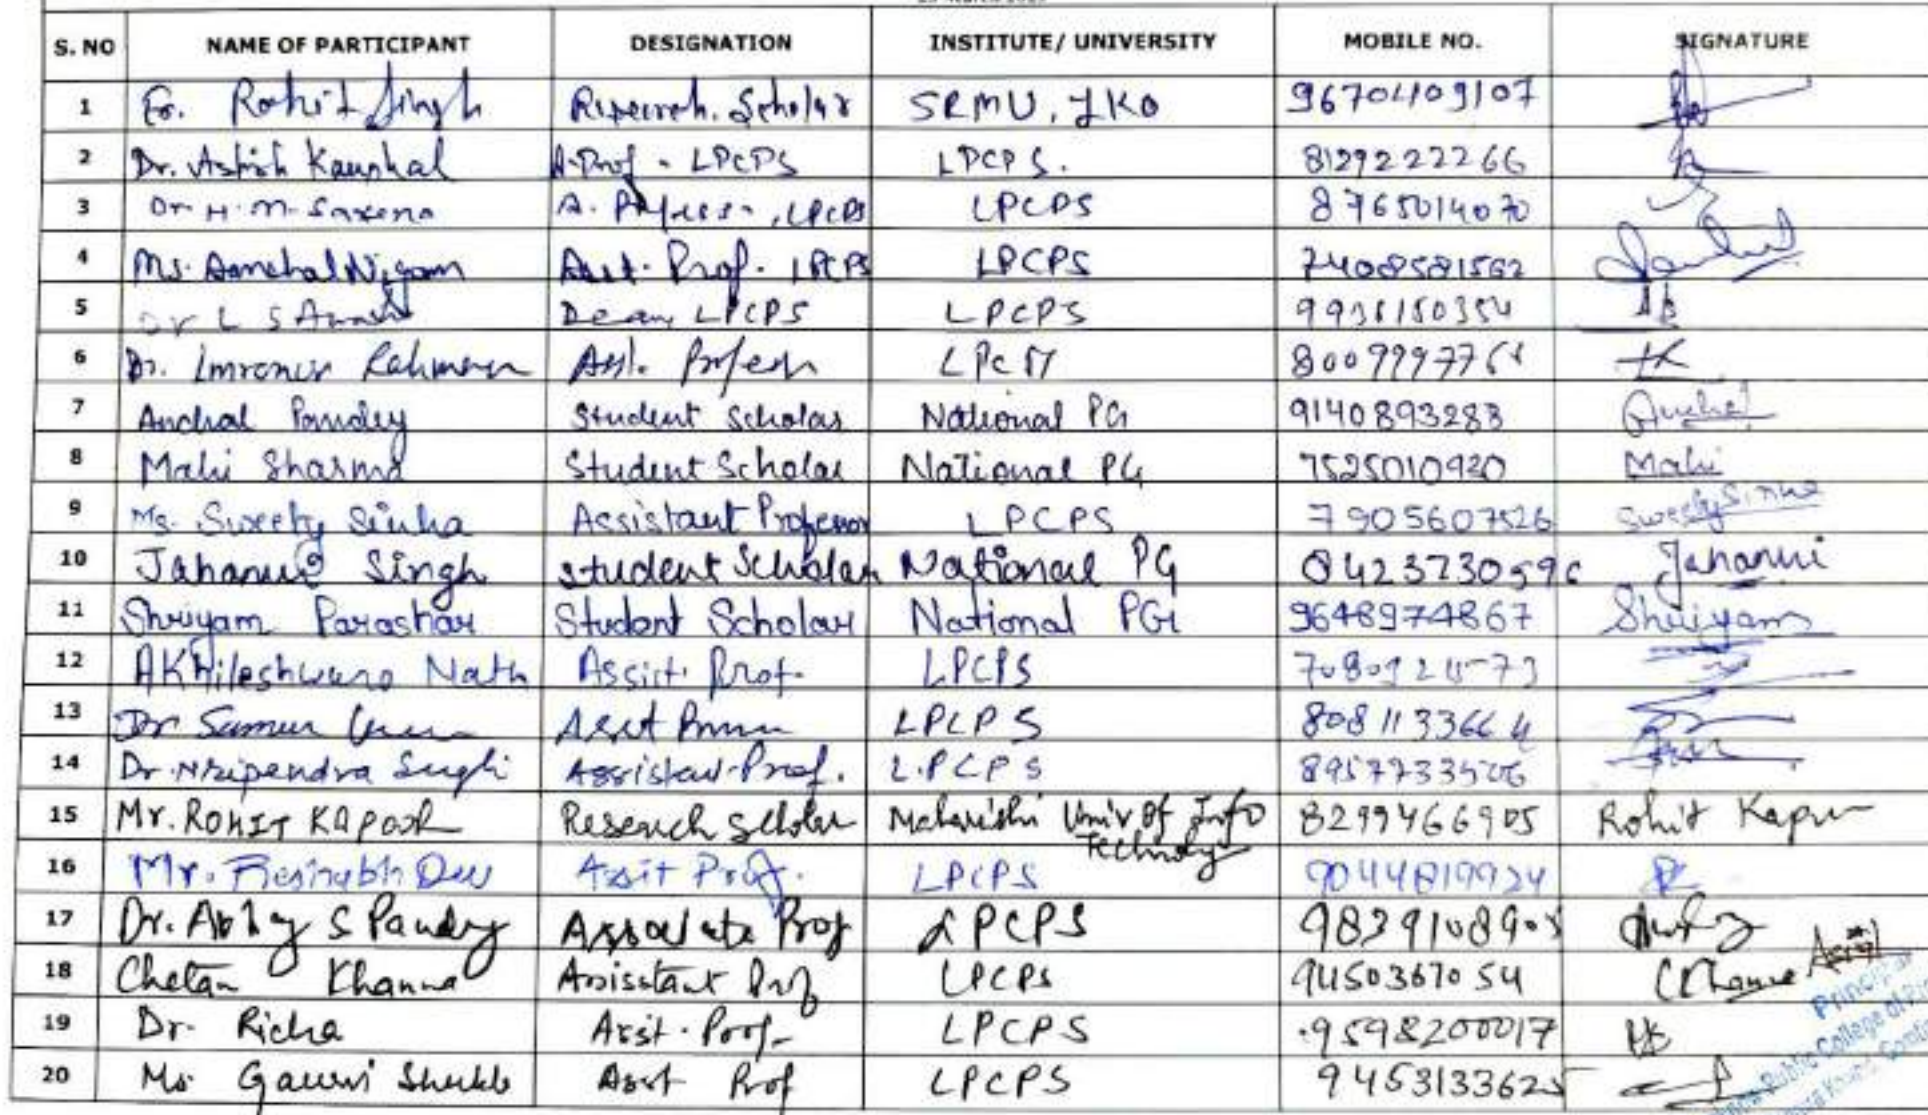 S. NO NAME OF PARTICIPANT DESIGNATION INSTITUTE/ UNIVERSITY MOBILE NO. SIGNATURE
1 Er. Rohit Singh Research. Scholar SRMU, LKO 9670409107
2 Dr. Ashish Kaushal A.Prof - LPCPS LPCPS. 8129222266
3 Dr H.M. Saxena A. Professor, LPCPS LPCPS 8765014070
4 Ms. Aanchal Nigam Asst. Prof. LPCPS LPCPS 7408581562
5 Dr L S Dean LPCPS LPCPS
6 Dr. Rahman Asst. LPCPS
7 Anchal Pandey Student Scholar National PG 9140893283
8 Mahi Sharma Student Scholar National PG 7525010920 Mahi
9 Ms. Sweety Sinha Assistant Professor LPCPS 7905607526 Sweety Sinha
10 Jahanvi Singh Student Scholar National PG 8423730596 Jahanvi
11 Shriyam Parashar Student Scholar National PG 9648974867 Shriyam
12 Akhileshwara Nath Assist. Prof. LPCPS
13 Dr Suman Asst LPCPS 8081133664
14 Dr. Nripendra Singh Assistant Prof. L.PCPS
15 Mr. ROHIT KAPOOR Research Scholar Maharishi Univ of Info 8299466905 Rohit Kapur
Technology
16 Mr. Dev Asst Prof. LPCPS 9044819924
17 Dr. Abhay S Pandey Associate Prof LPCPS
18 Chetan Khanna Assistant Prof LPCPS 9450367054 CKhanna
Principal
19 Dr. Richa Asst. Prof. LPCPS 9598200017
Public College of
20 Ms. Gauri Shukla Asst Prof LPCPS 9453133625